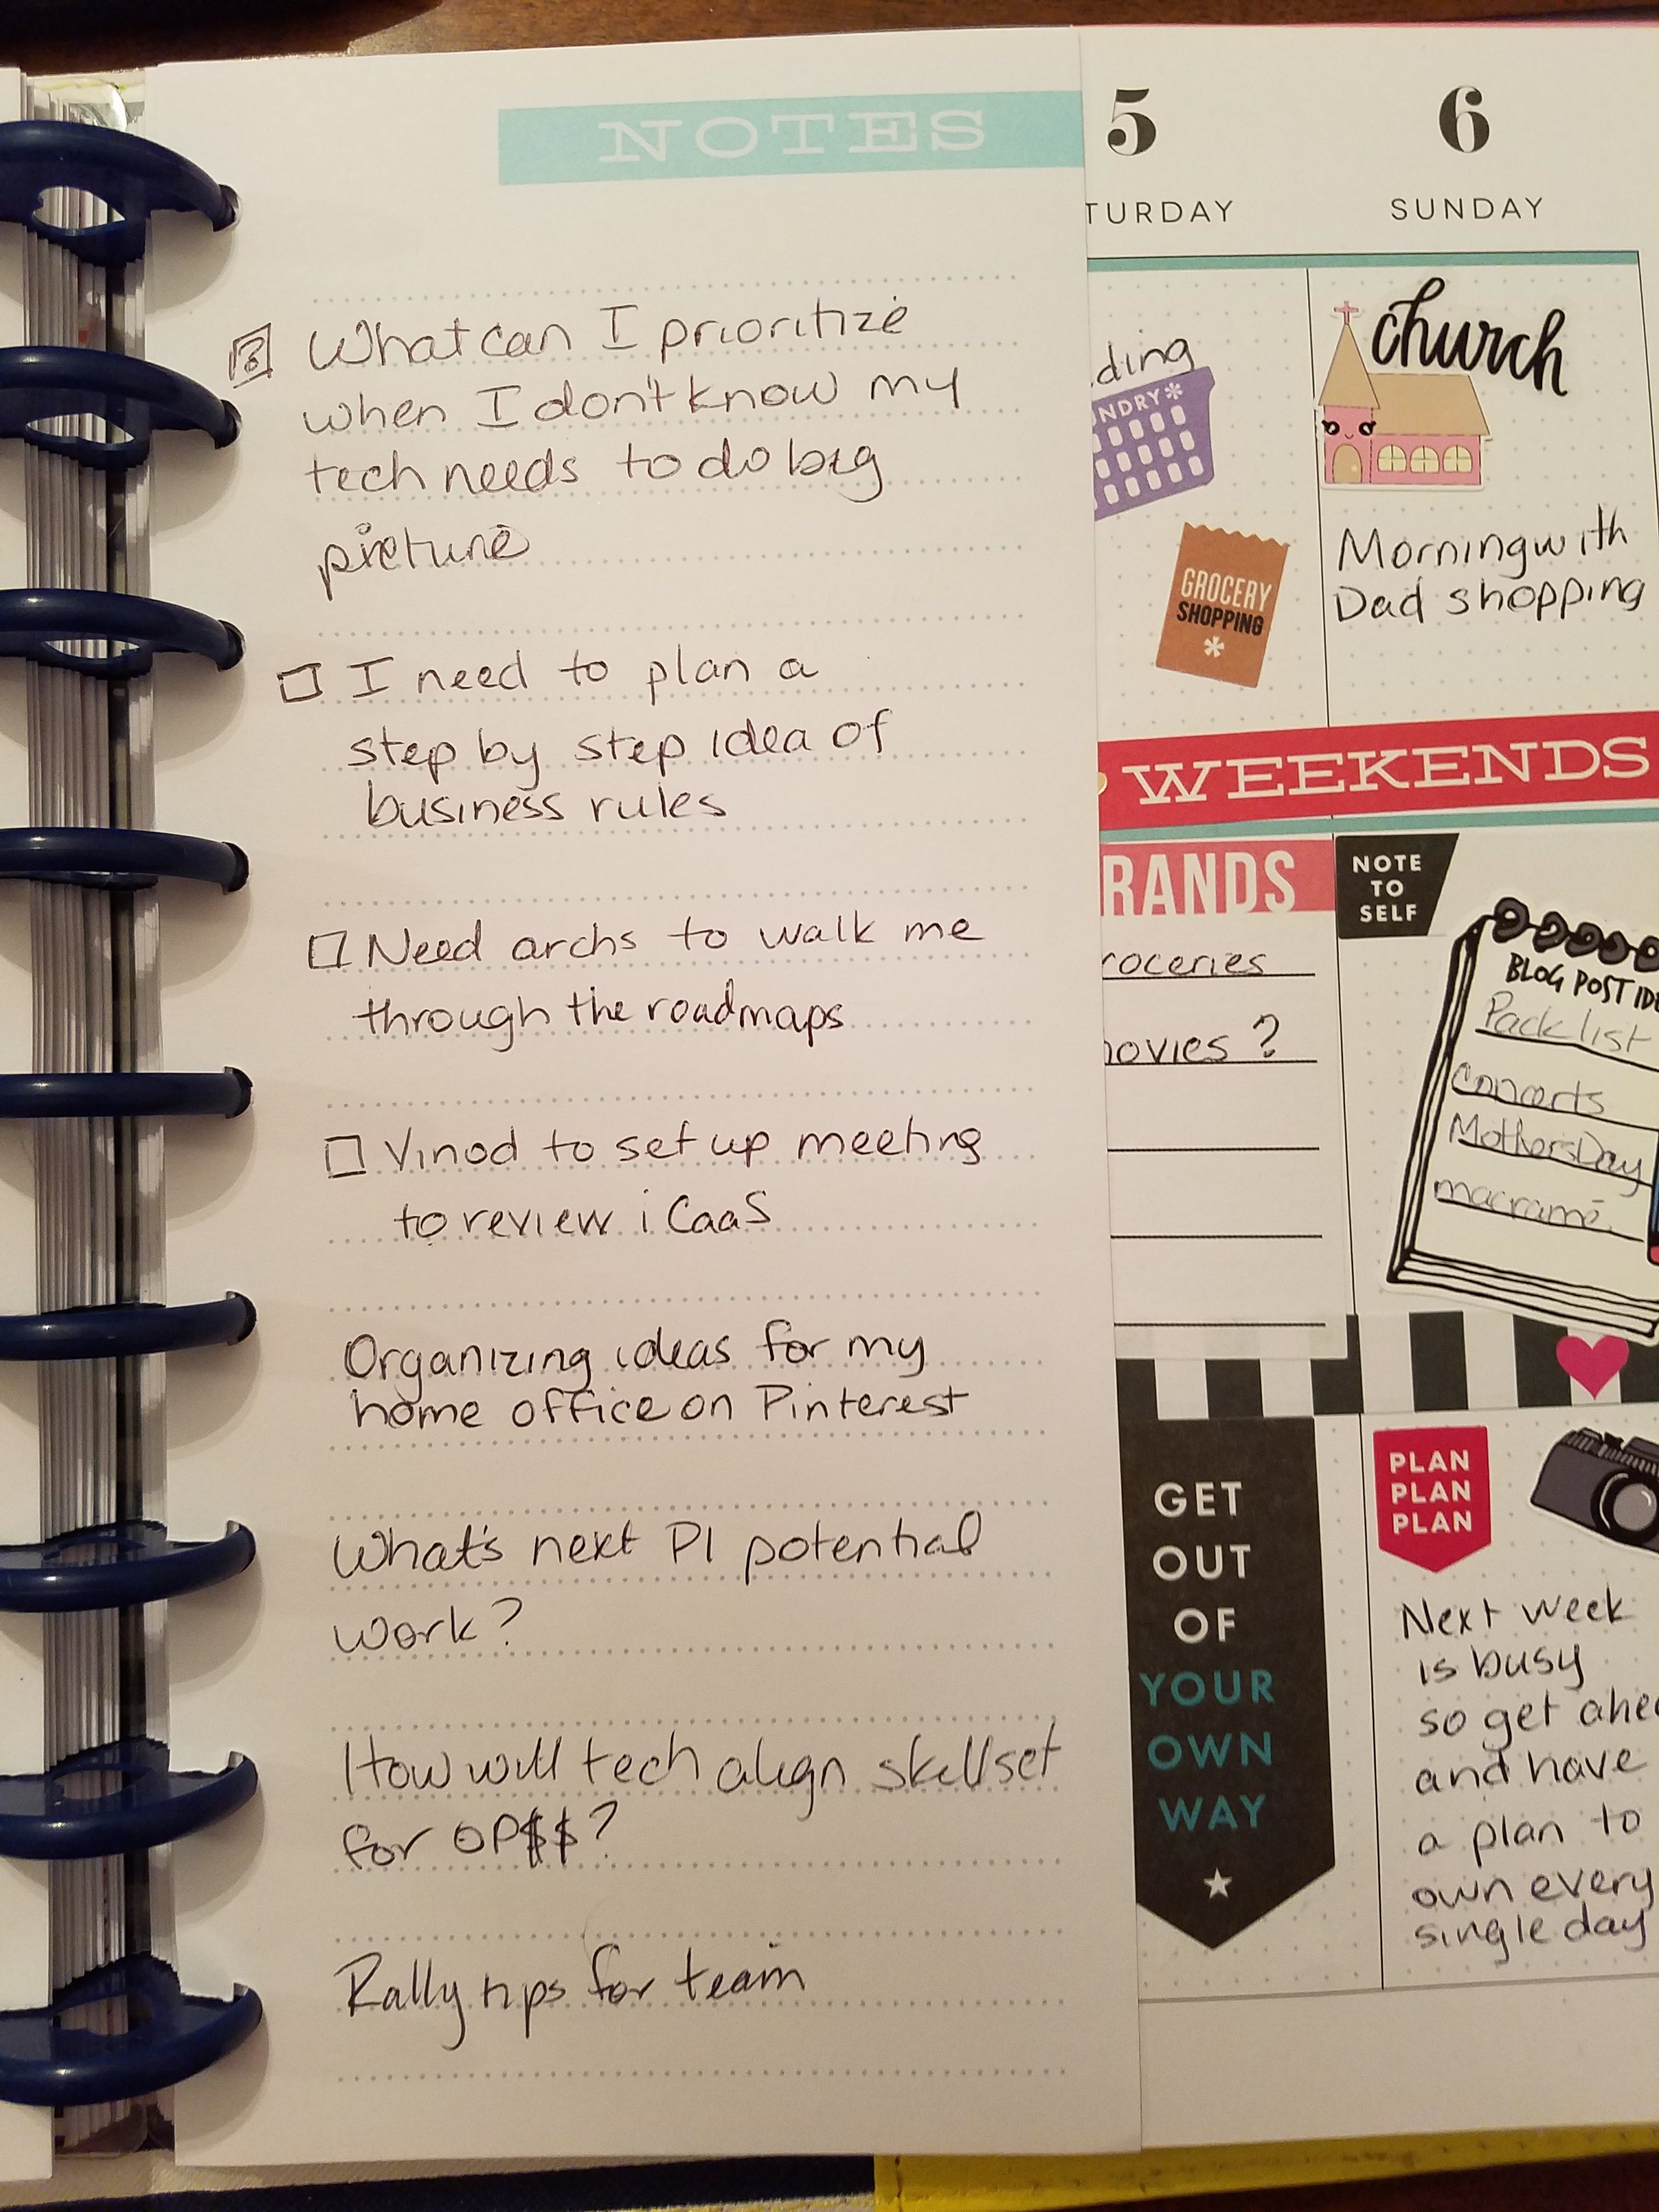 NOTES
? What can I prioritize
when I don't know my
tech needs to do big
picture
I need to plan a
step by step idea of
business rules
Need archs to walk me
through the roadmaps
Vinod to set up meeting
to review iCaaS
Organizing ideas for my
home office on Pinterest
What's next PI potential
work?
How will tech align skillset
for OP$$?
Rally tips for team
5
TURDAY
ding
NDRY*
GROCERY
SHOPPING
*
6
SUNDAY
church
Morning with
Dad shopping
WEEKENDS
RANDS
roceries
movies?
NOTE
TO
SELF
BLOG POST IDE
Pack list
Concerts
Mothers Day
macramé
GET
OUT
OF
YOUR
OWN
WAY
PLAN
PLAN
PLAN
Next week
is busy
so get ahea
and have
a plan to
own every
single day